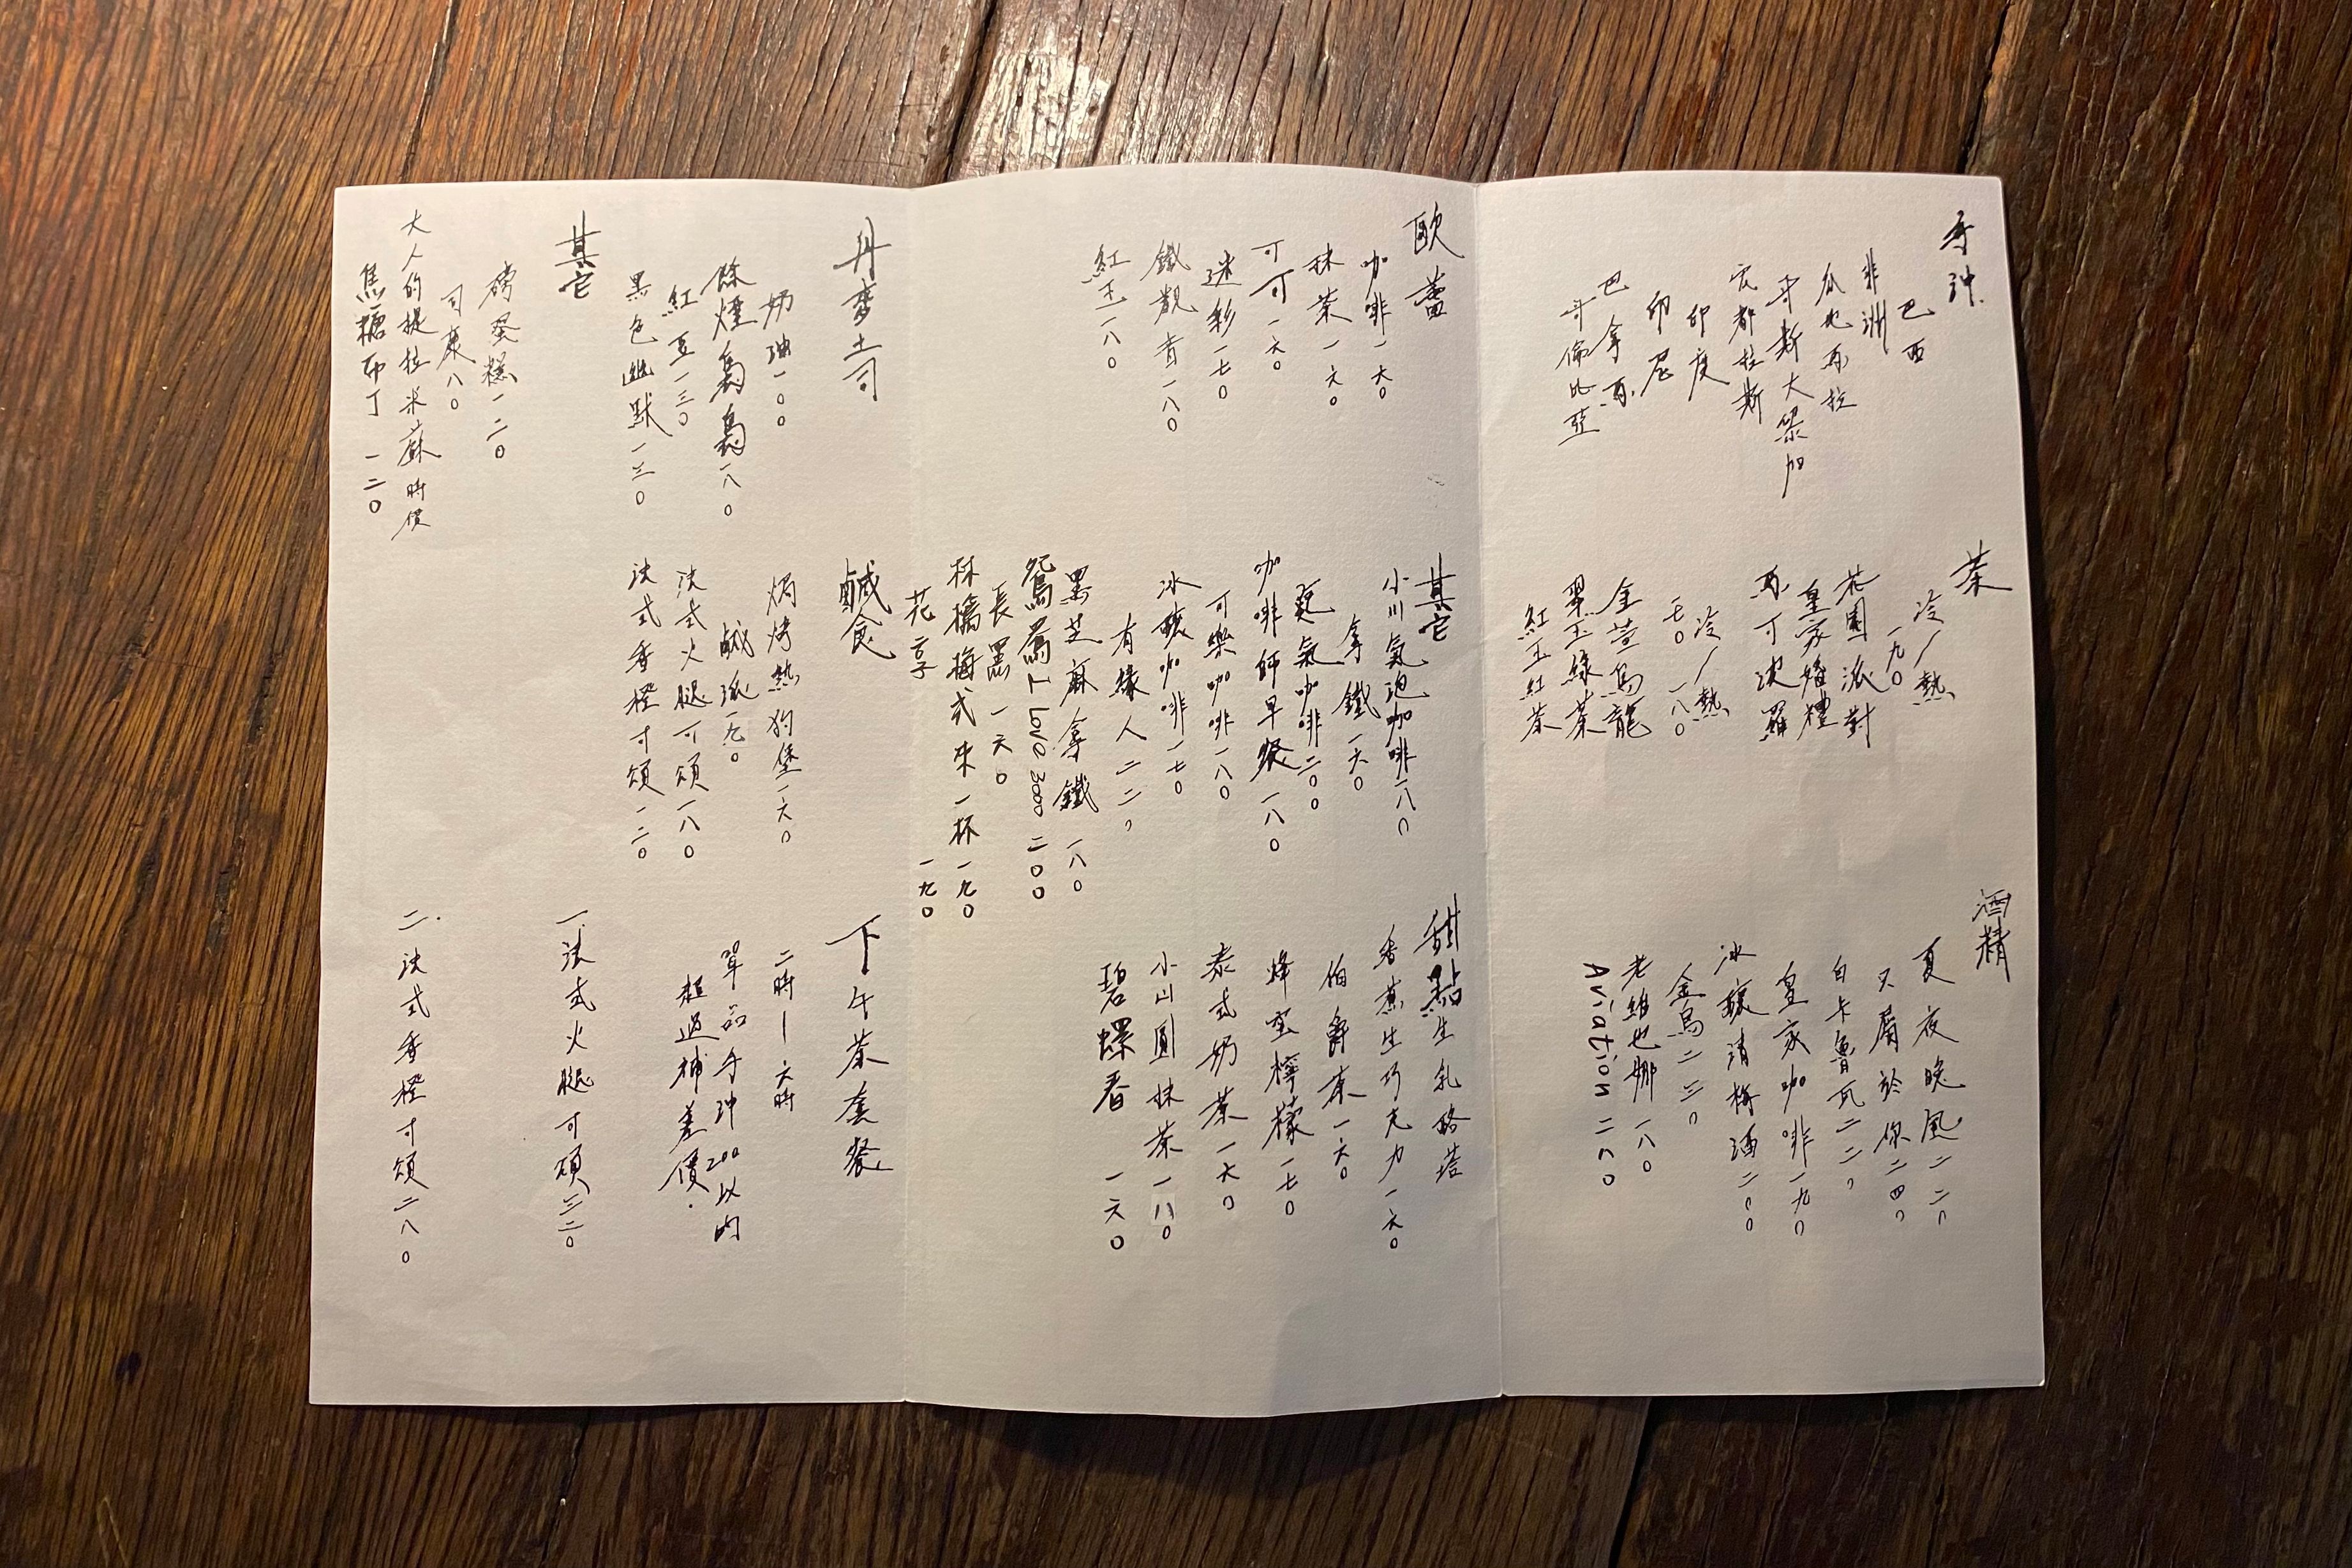 手沖
巴西
非洲
瓜地馬拉
哥斯大黎加
宏都拉斯
印度
印尼
巴拿馬
哥倫比亞
茶
冷/熱
一九〇
花園派對
皇家婚禮
馬可波羅
冷/熱
一七〇 一八〇
金萱烏龍
翠玉綠茶
紅玉紅茶
酒精
夏夜晚風二二〇
只屬於你二四〇
白卡魯瓦二二〇
皇家咖啡一九〇
冰釀清梅酒二〇〇
金烏二三〇
老維也娜一八〇
Aviation 二八〇
歐蕾
咖啡一六〇
抹茶一六〇
可可一六〇
迷彩一七〇
鐵觀音一八〇
紅玉一八〇
其它
小川氣泡咖啡一八〇
拿鐵一六〇
氮氣咖啡二〇〇
咖啡師早餐一八〇
可樂咖啡一八〇
冰釀咖啡一七〇
有緣人二二〇
黑芝麻拿鐵 一八〇
鴛鴦I Love 3000 二〇〇
長黑一六〇
林檎梅式來一杯一九〇
花享 一九〇
甜點
生乳酪塔
香蕉生巧克力一六〇
伯爵茶一六〇
蜂蜜檸檬一七〇
泰式奶茶一六〇
小山圓抹茶一八〇
碧螺春 一六〇
丹麥土司
奶油一〇〇
除煙島島一八〇
紅豆一三〇
黑色幽默一三〇
其它
磅蛋糕一二〇
司康八〇
大人的提拉米蘇時價
焦糖布丁一二〇
鹹食
焗烤熱狗堡一六〇
鹹派一九〇
法式火腿可頌一八〇
法式香橙可頌一二〇
下午茶套餐
二時—六時
單品手沖200以內
超過補差價.
一.法式火腿可頌三二〇
二.法式香橙可頌二八〇